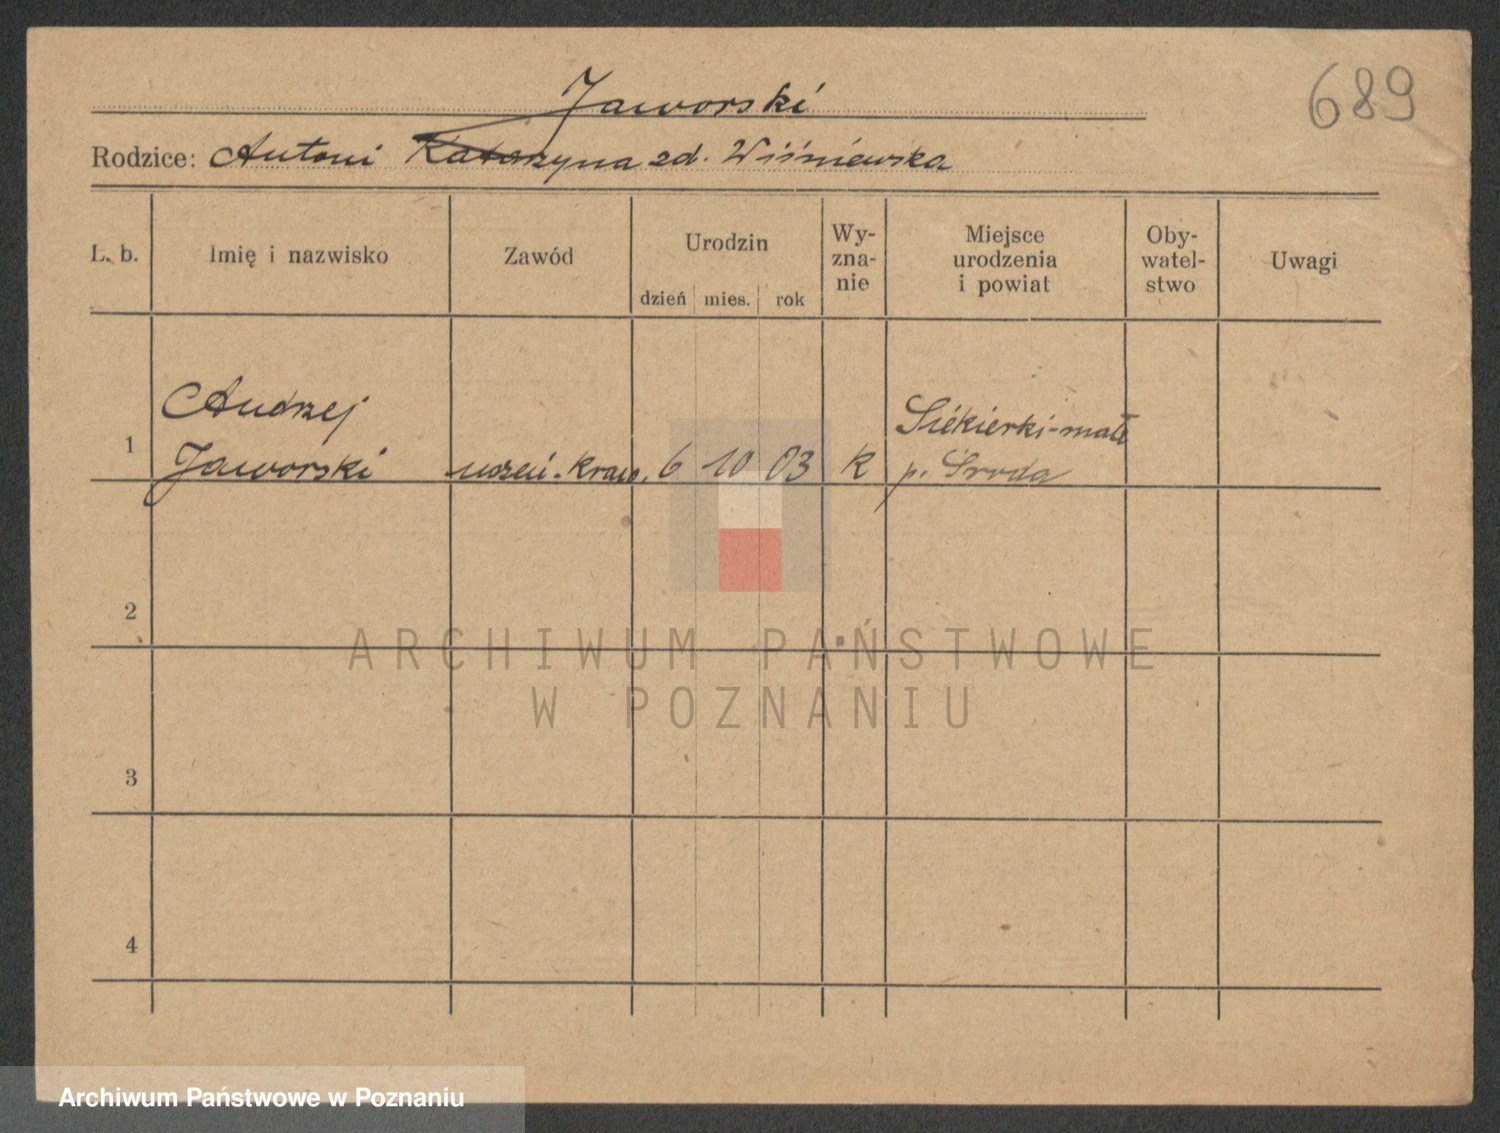 689
Jaworski
Rodzice: Antoni Katarzyna zd. Wiśniewska
L. b. Imię i nazwisko Zawód Urodzin Wy- Miejsce Oby-
zna- urodzenia watel- Uwagi
nie i powiat stwo
dzień mies. rok
Andrzej Siekierki-małe
1 Jaworski uczeń-kraw. 6 10 03 k p. Środa
2
ARCHIWUM PAŃSTWOWE
W POZNANIU
3
4
Archiwum Państwowe w Poznaniu